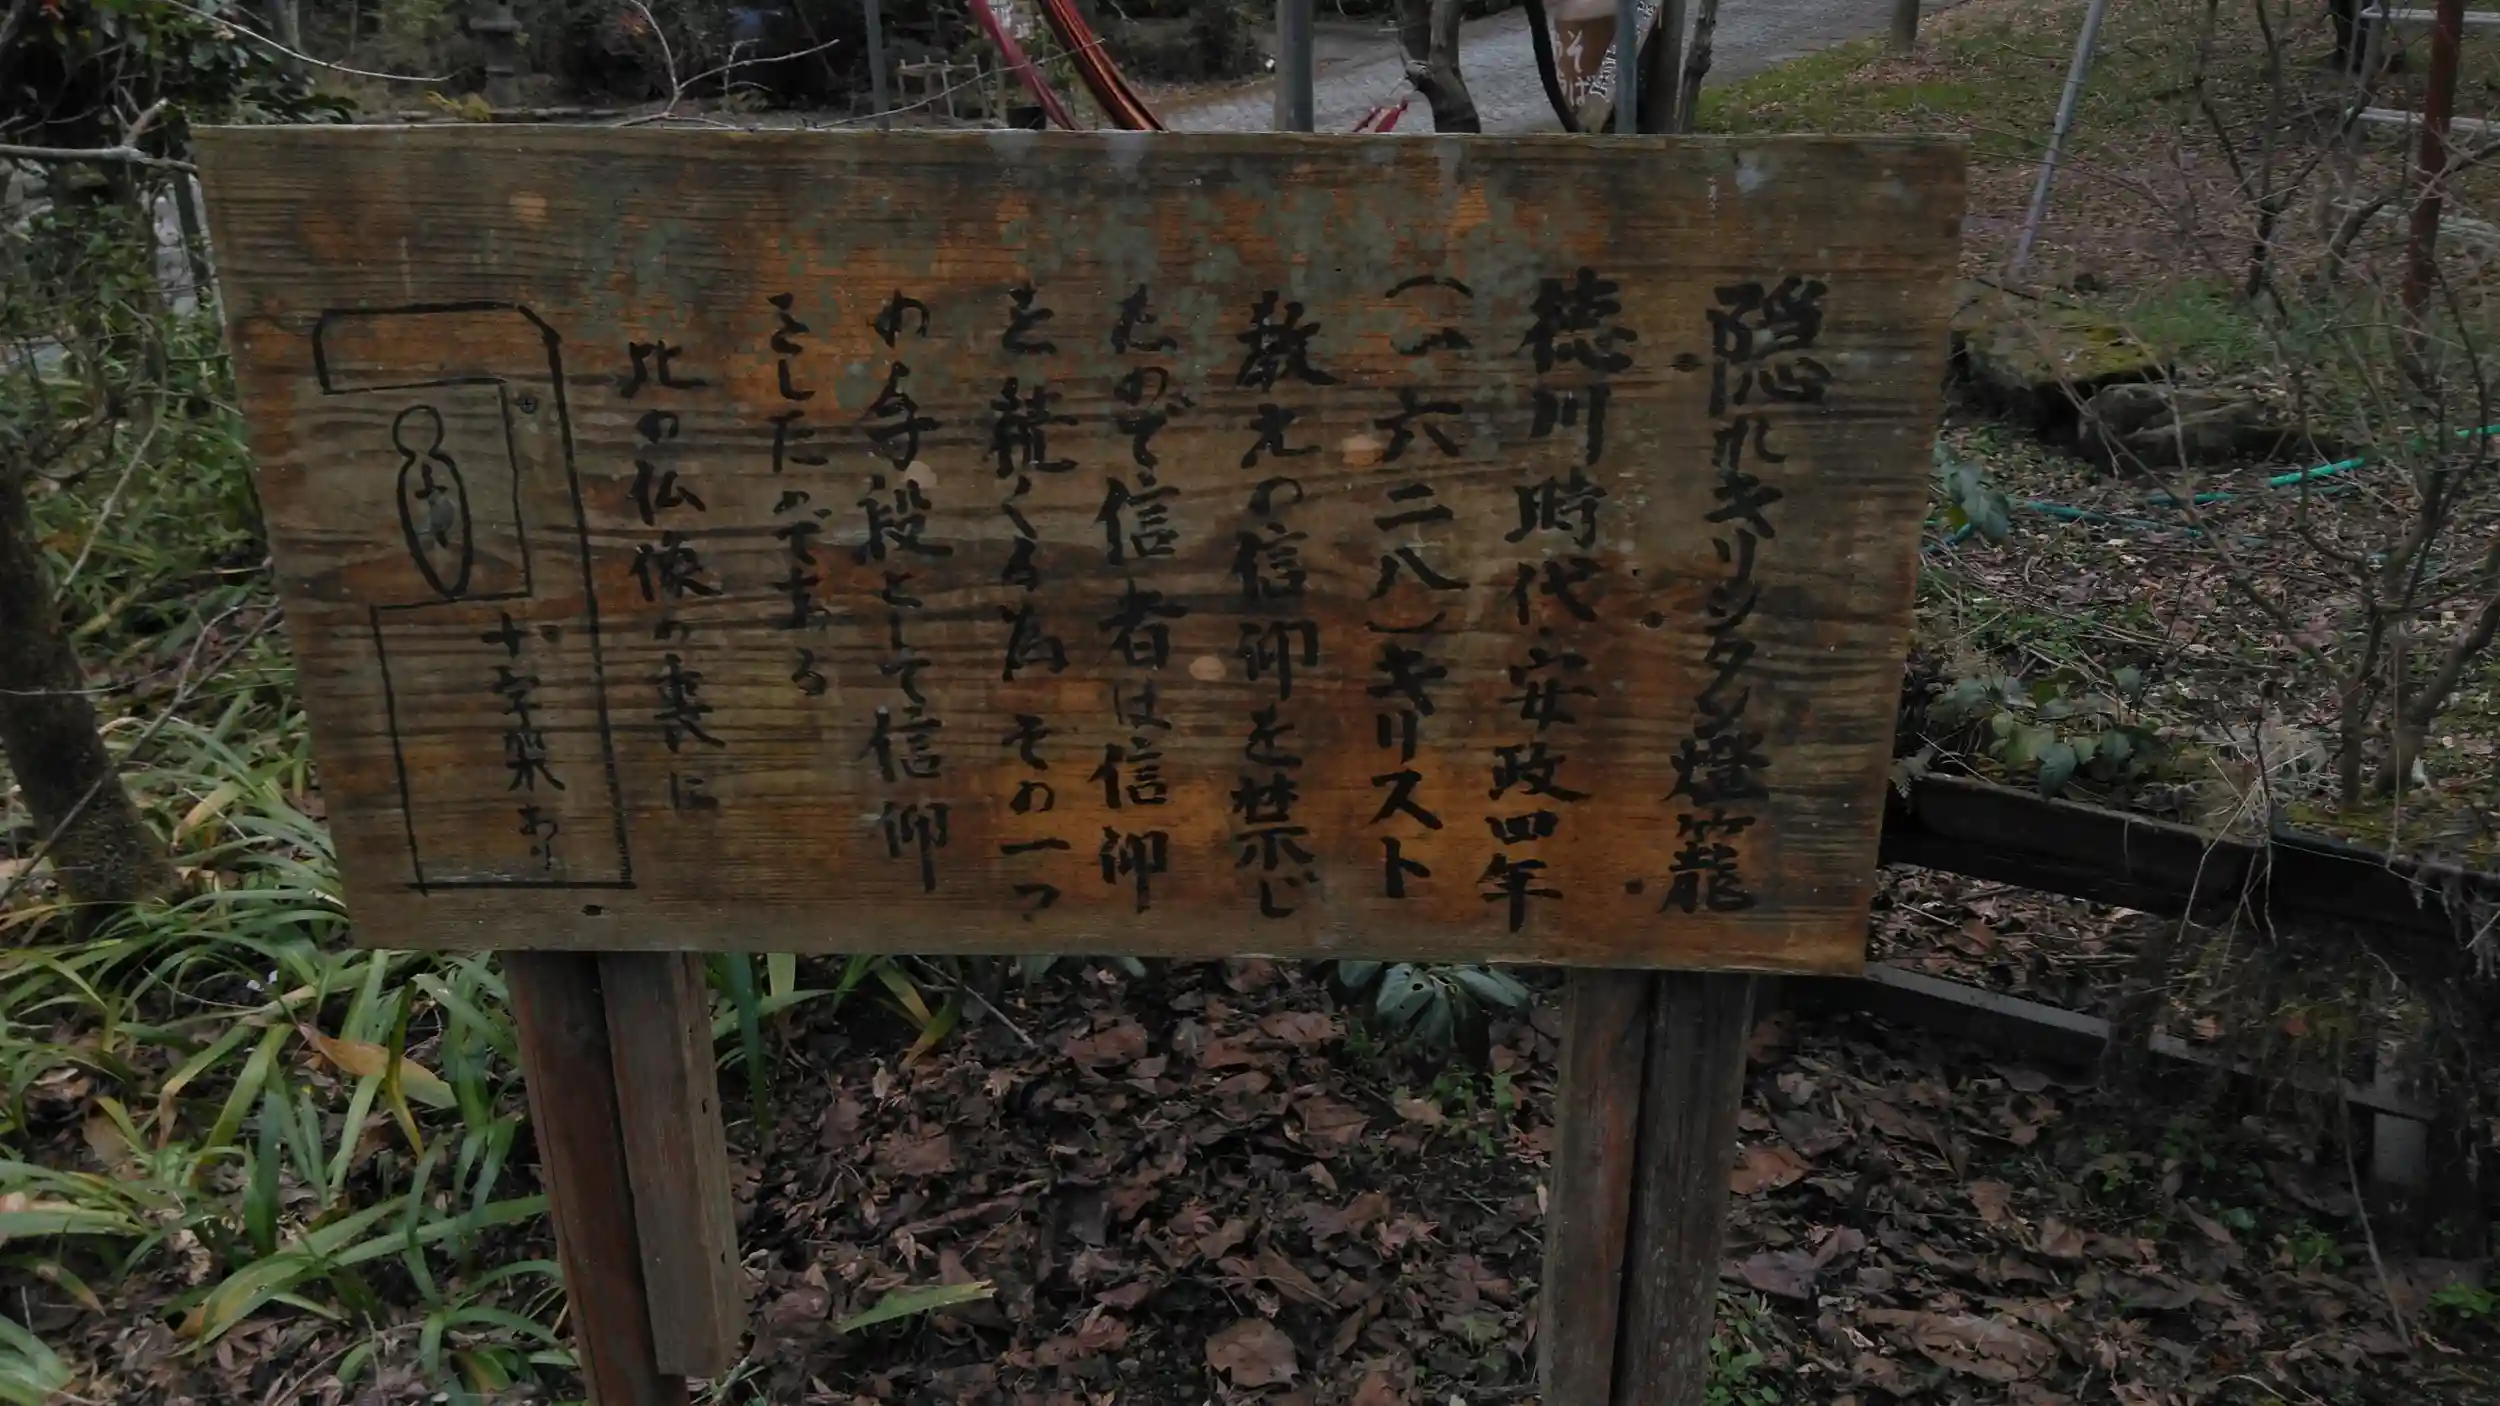 隠れキリシタン燈籠
徳川時代安政四年
(一六二八)キリスト
教えの信仰を禁じ
たので信者は信仰
を続くる為その一つ
の手段として信仰
をしたのである
此の仏像の裏に
十字架あり
そば